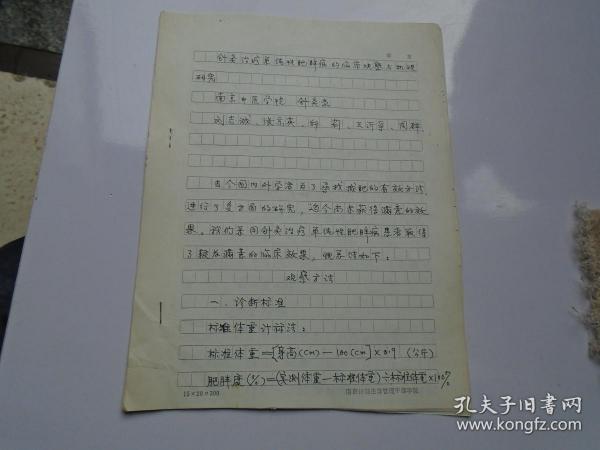 针灸治疗单纯性肥胖病的临床观察与机理
研究
南京中医学院 针灸系
刘志诚、
当今国内外学者为了寻找减肥的有效方法,
进行了多方面的研究,迄今尚未获得满意的效
果。我们采用针灸治疗单纯性肥胖病患者获得
了较为满意的临床效果,现总结如下:
观察方法
一、诊断标准
标准体重计算法:
标准体重=[身高(cm)-100(cm)]×0.9 (公斤)
肥胖度(%)=(实测体重-标准体重)÷标准体重×100%
15×20=300
孔夫子旧书网
www.kongfz.com